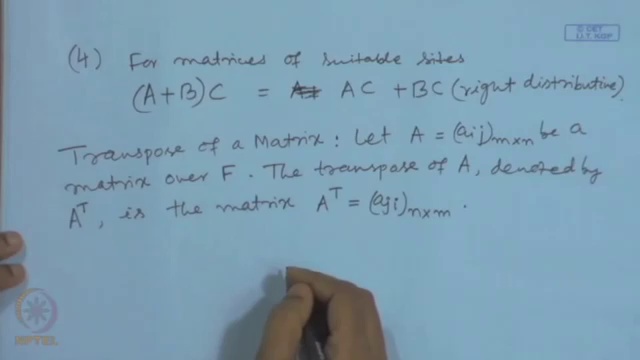 © CET
I.I.T. KGP
(4) For matrices of suitable sites
(A+B)C = AC + BC (right distributive).
Transpose of a Matrix: Let A = (aij)m×n be a
matrix over F. The transpose of A, denoted by
Aᵀ, is the matrix Aᵀ = (aji)n×m.
NPTEL